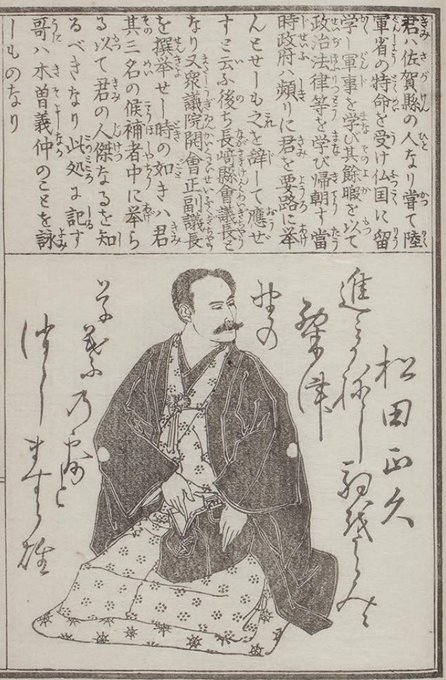 君ハ佐賀縣の人なり嘗て陸
軍省の特命を受け仏国に留
学し軍事を学び其餘暇を以て
政治法律等を学び帰朝す當
時政府ハ頻りに君を要路に挙
んとせしも之を辞して應ぜ
すと云ふ後ち長崎縣會議長と
なり又衆議院開會正副議長
を撰挙せし時の如きハ君
其三名の候補者中に挙ら
る以て君の人傑なるを知
るべきなり此処に記す
哥ハ木曽義仲のことを詠
しものなり
松田正久
進ミかねし
粟津
野の
草葉乃露と
消しますら雄